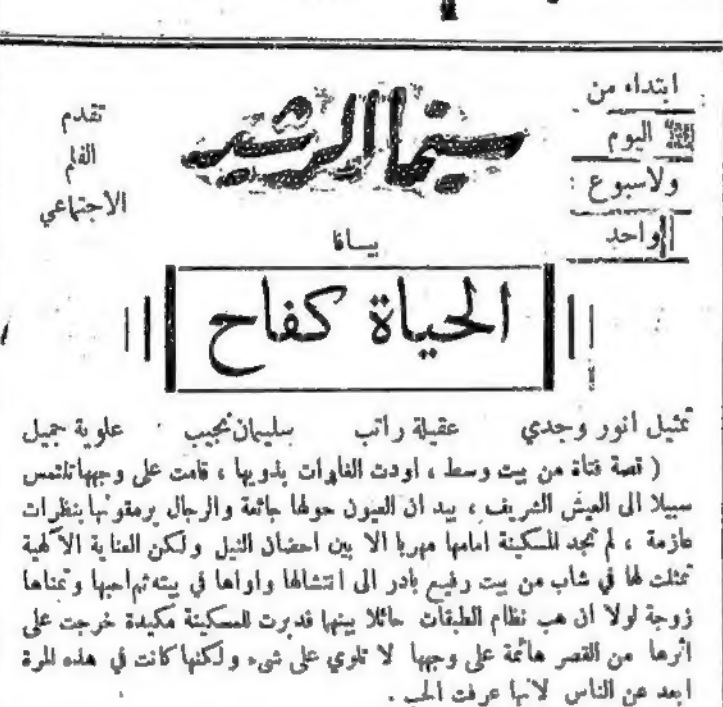 ابتداء من
اليوم
ولاسبوع
واحد
سينما الرشيد
بيافا
تقدم
الفلم
الاجتماعي
الحياة كفاح
تمثيل انور وجدي عقيلة راتب سليمان نجيب علوية جميل
( قصة فتاة من بيت وسط ، اودت الغارات بذويها ، قامت على وجهها تلتمس
سبيلا الى العيش الشريف ، بيد ان العيون حولها جائعة والرجال يرمقونها بنظرات
عارمة ، لم تجد المسكينة امامها مهربا الا بين احضان النيل ولكن العناية الآلهية
تمثلت لها في شاب من بيت رفيع بادر الى انتشالها واواها في بيته ثم احبها وتمناها
زوجة لولا ان هب نظام الطبقات حائلا بينها فدبرت للمسكينة مكيدة خرجت على
اثرها من القصر هائمة على وجهها لا تلوي على شىء ولكنها كانت في هذه المرة
ابعد عن الناس لانها عرفت الحب .